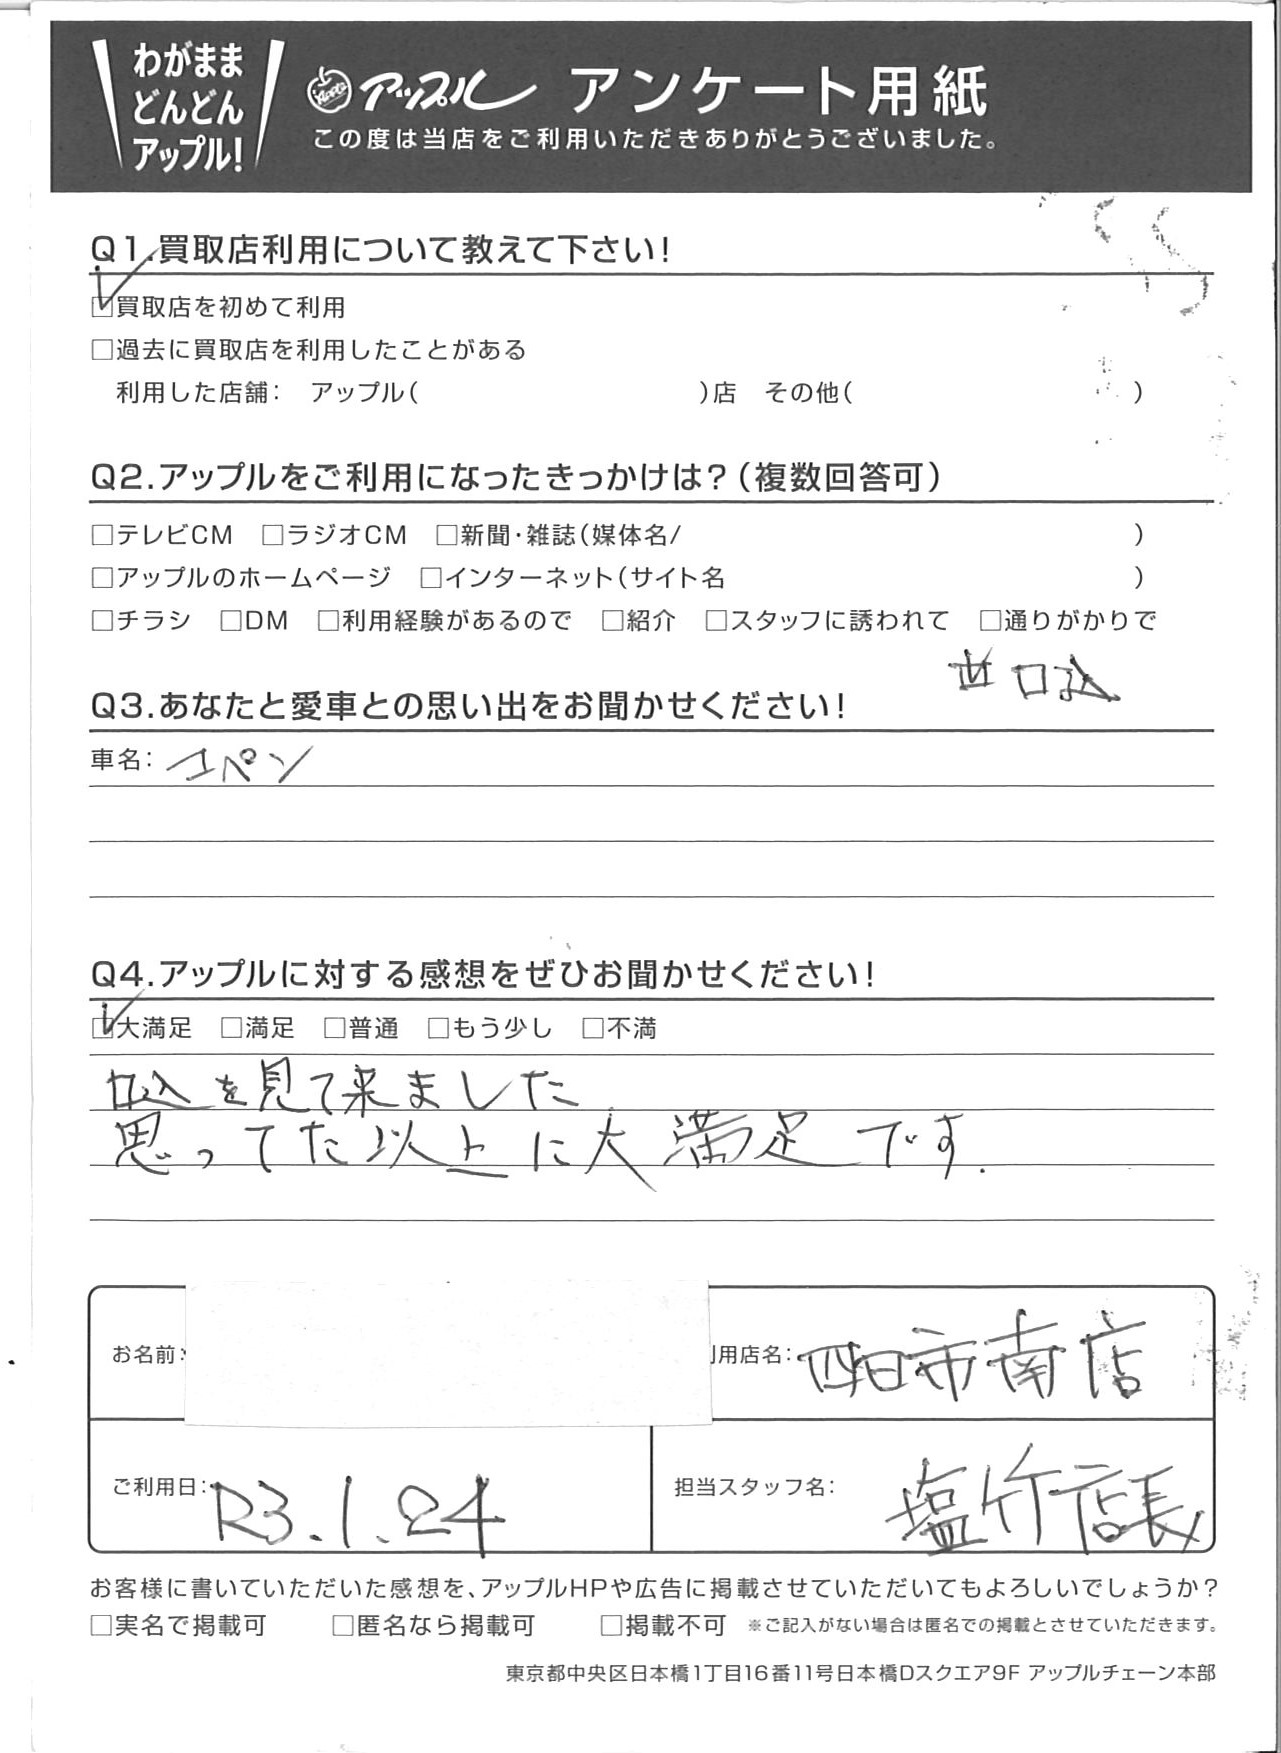 わがまま
どんどん
アップル!
Apple アップル アンケート用紙
この度は当店をご利用いただきありがとうございました。
Q1.買取店利用について教えて下さい!
☑買取店を初めて利用
□過去に買取店を利用したことがある
利用した店舗: アップル( )店 その他( )
Q2.アップルをご利用になったきっかけは?(複数回答可)
□テレビCM □ラジオCM □新聞・雑誌(媒体名/ )
□アップルのホームページ □インターネット(サイト名 )
□チラシ □DM □利用経験があるので □紹介 □スタッフに誘われて □通りがかりで
口込
Q3.あなたと愛車との思い出をお聞かせください!
車名: コペン
Q4.アップルに対する感想をぜひお聞かせください!
☑大満足 □満足 □普通 □もう少し □不満
口込を見て来ました
思ってた以上に大満足です.
お名前:
用店名: 四日市南店
ご利用日: R3.1.24
担当スタッフ名: 塩竹店長
お客様に書いていただいた感想を、アップルHPや広告に掲載させていただいてもよろしいでしょうか?
□実名で掲載可 □匿名なら掲載可 □掲載不可 ※ご記入がない場合は匿名での掲載とさせていただきます。
東京都中央区日本橋1丁目16番11号日本橋Dスクエア9F アップルチェーン本部